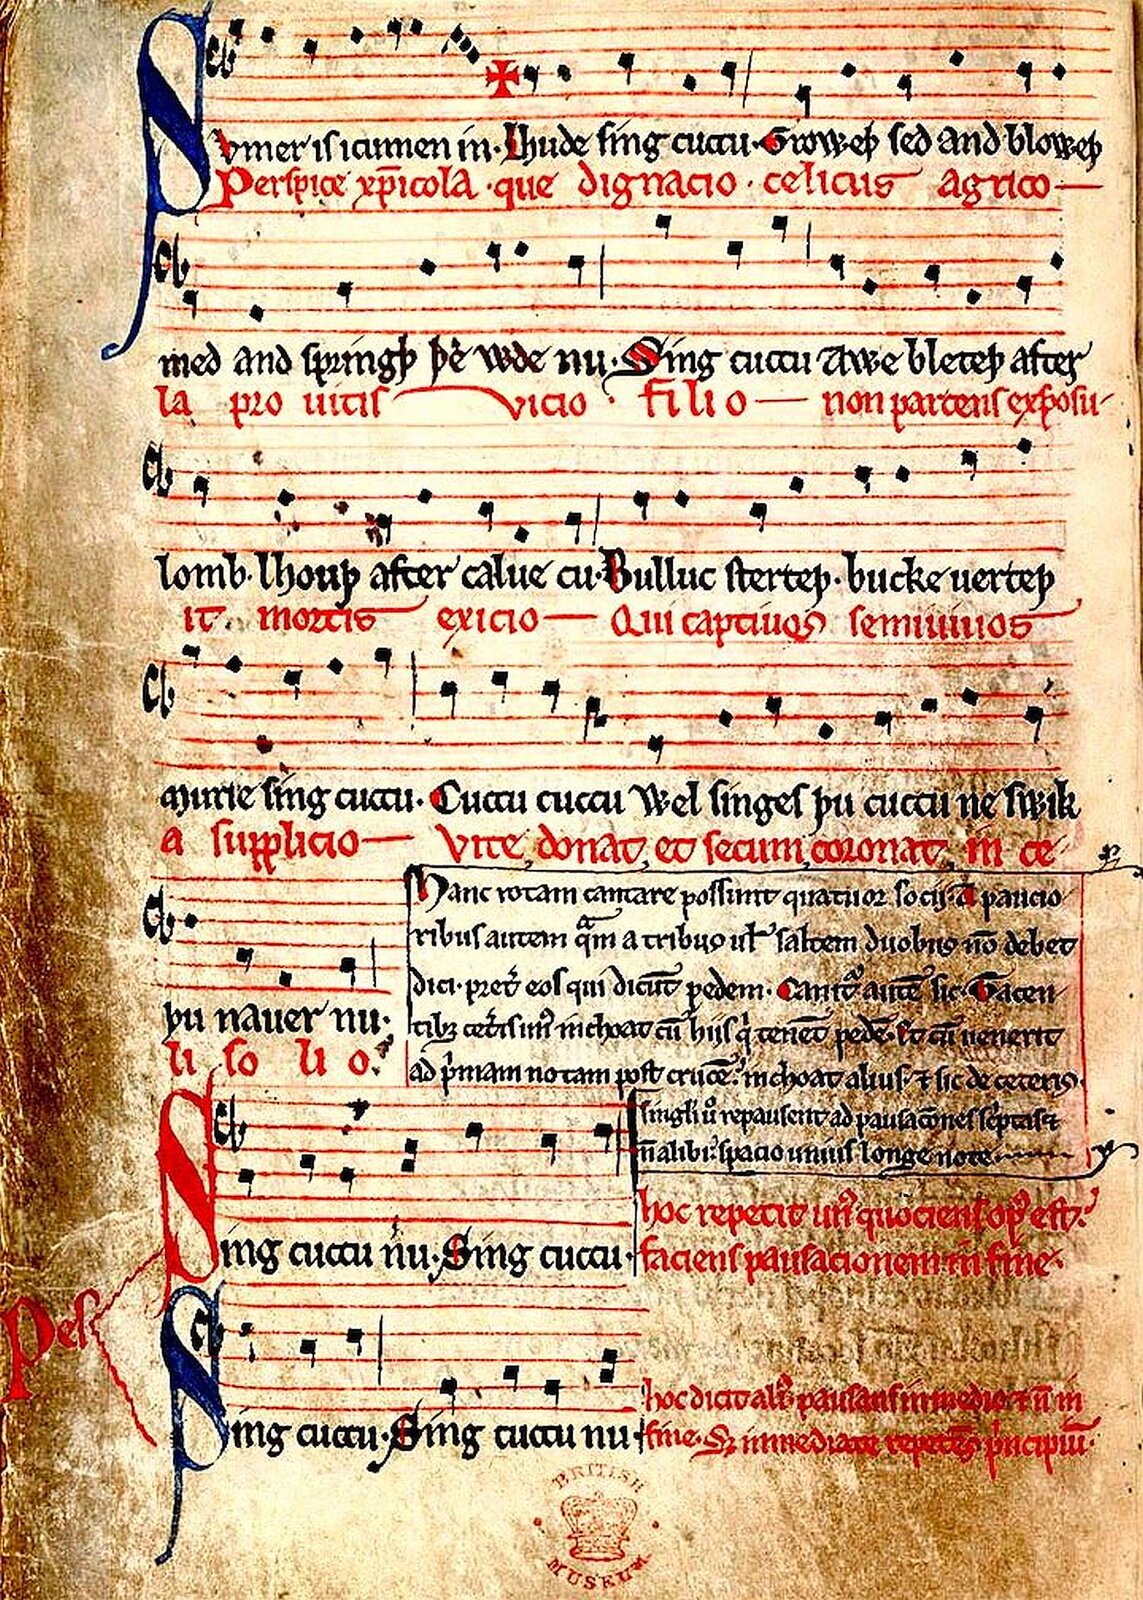 Svmer is icumen in. Lhude sing cuccu. Groweþ sed and bloweþ
Perspice xp̄icola que dignacio celicus agrico
med and springþ þe wde nu. Sing cuccu Awe bleteþ after
la pro uitis vicio filio non parcens exposu
lomb. lhouþ after calue cu. Bulluc sterteþ. bucke uerteþ
it mortis exicio Qui captiuos semiuiuos
murie sing cuccu. Cuccu cuccu Wel singes þu cuccu ne swik
a supplicio Vite donat et secum coronat in ce
þu nauer nu.
li so li o.
Hanc rotam cantare possunt quatuor socij. A paucio
ribus autem qᵃm a tribus ul' saltem duobus nō debet
dici. pret̉ eos qui dicūt pedem. Canit̉ autē sic. Tacen
tib; cet̉is un᷒ inchoat cū hijs q̇ tenēt pedē. Et cū uenerit
ad p̉mam notam post crucē. inchoat alius. ⁊ sic de ceteris.
singli ů repausent ad pausacōnes sc̉ptas ⁊
n̄ alibi. spacio unius longe note.
Sing cuccu nu. Sing cuccu.
hoc repetit un᷒ quociens op᷒ est.
faciens pausacionem in fine.
Pes
Sing cuccu. Sing cuccu nu
hoc dicit ali᷒ pausans in medio ⁊ n̄ in
fine. Sꝫ immediate repetēs p̉ncipiū.
BRITISH
MUSEUM